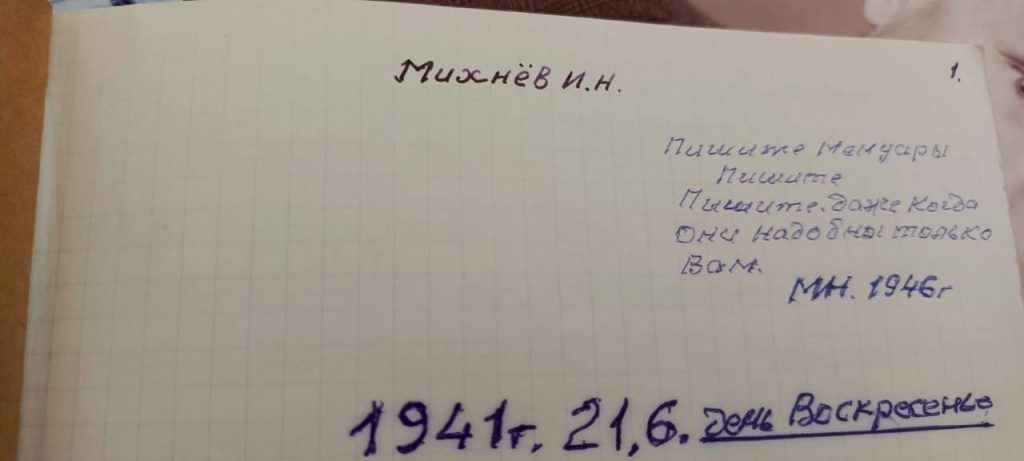 Михнёв И.Н.
1.
Пишите мемуары
Пишите
Пишите даже когда
Они надобны только
Вам.
МН. 1946г
1941г. 21,6. день Воскресенье